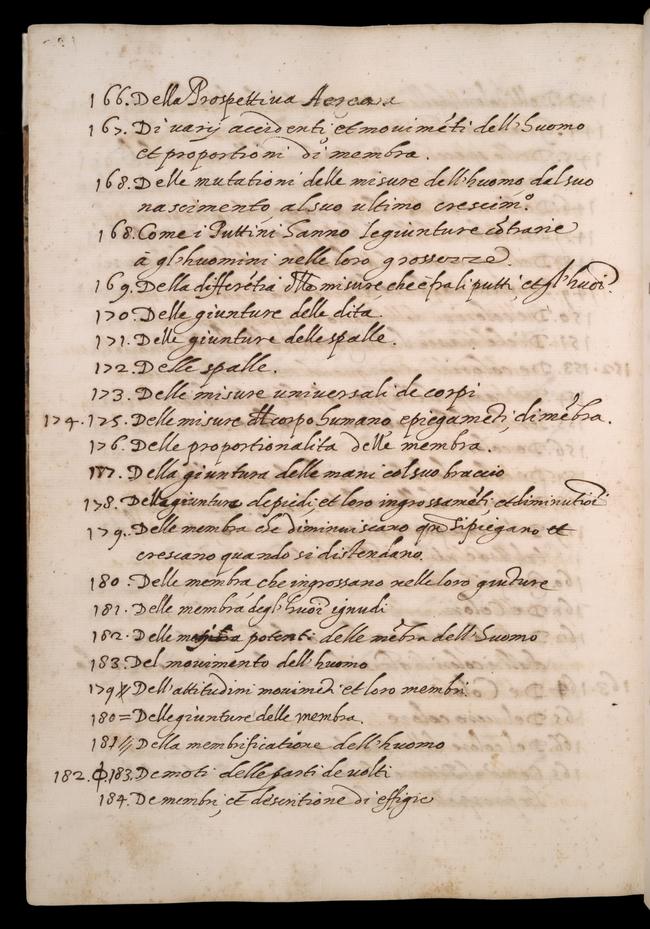 166. Della Prospettiva Aerea
167. Di varij accidenti et movimẽti dell'huomo
et proportioni di membra.
168. Delle mutationi delle misure dell'huomo dal suo
nascimento al suo ultimo crescim.º
168. Come i Puttini hanno le giunture cõtrarie
a gl'huomini nelle loro grossezze.
169. Della differẽtia dlle misure che è fra li putti, et gl'huoĩ.
170. Delle giunture delle dita.
171. Delle giunture delle spalle.
172. Delle spalle.
173. Delle misure universali de corpi
174. 175. Delle misure dl corpo humano, e piegamẽti di mẽbra.
176. Delle proportionalita delle membra.
177. Della giuntura delle mani col suo braccio
178. Delle giunture de piedi, et loro ingrossamẽti et diminutioĩ
179. Delle membra che diminuiscano qñ si piegano et
crescano quando si distendano.
180. Delle membra che ingrossano nelle loro giũture
181. Delle membra degl'huoĩ ignudi
182. Delle potenti delle mẽbra dell'huomo
183. Del movimento dell'huomo
179 Dell'attitudini movimẽti et loro membri
180= Delle giunture delle membra.
181// Della membrificatione dell'huomo
182. 183. De moti delle parti de volti
184. De membri, et descritione di effigie